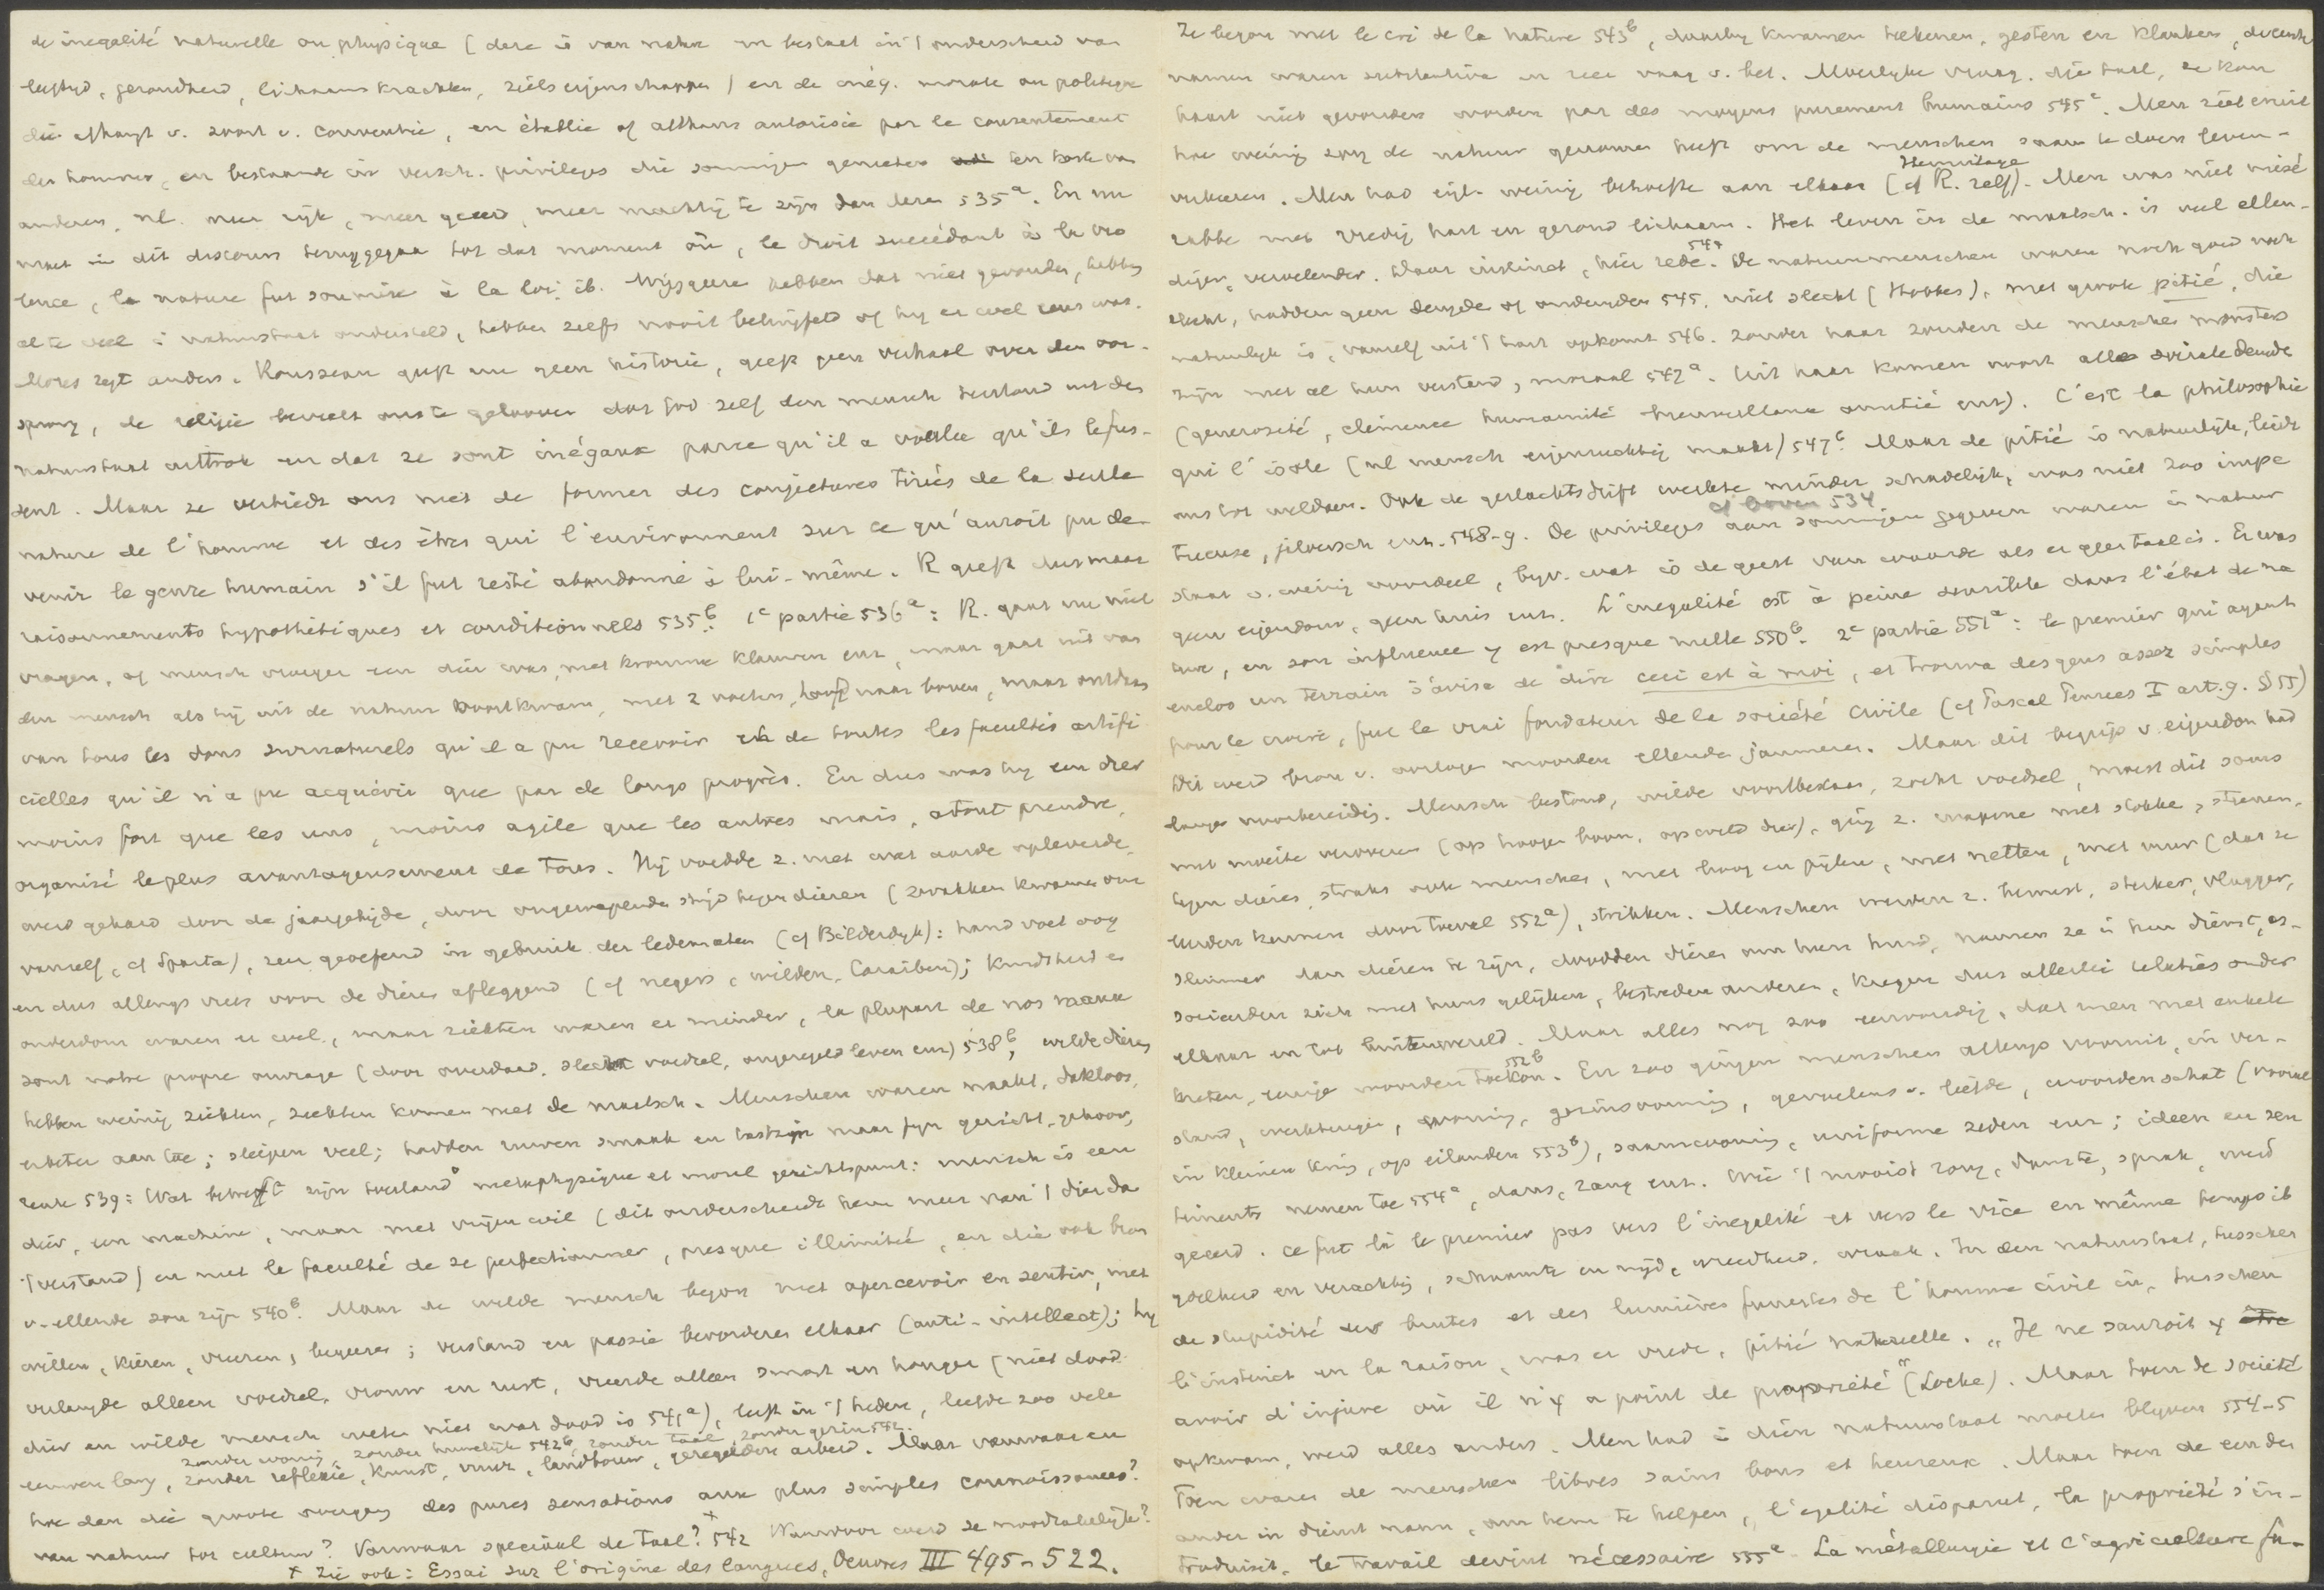 de inegalité naturelle ou physique (deze is van natur en bestaat in 't onderscheid van
leeftijd, gezondheid, lichaamskrachten, zielseigenschappen) en de inég. morale ou politique
die afhangt v. soort v. conventie, en établie of althans autorisée par le consentement
des hommes, en bestaande in versch. privileges die sommigen genieten ten koste van
anderen, nl. meer rijk, meer geëerd, meer machtig te zijn dan dezen 535a. En nu
moet in dit discours teruggegaan tot dat moment où, le droit succédant à la vio
lence, la nature fut soumise à la loi ib. Wijsgeeren hebben dat niet gevonden, hebben
al te veel i natuurstaat ondersteld, hebben zelfs nooit betwijfeld of hij er wel eens was.
Mozes zegt anders. Rousseau geeft nu geen historie, geeft geen verhaal over den oor-
sprong, de religie beveelt ons te gelooven dat God zelf den mensch terstond uit den
natuurstaat onttrok en dat ze sont inégaux parce qu'il a voulu qu'ils le fus-
sent. Maar ze verbiedt ons niet de former des conjectures tirées de la seule
nature de l'homme et des êtres qui l'environnent sur ce qu'auroit pu de-
venir le genre humain s'il fut resté abandonné à lui-même. R geeft dus maar
raisonnements hypothétiques et conditionnels 535b. 1e partie 536a: R. gaat nu niet
vragen, of mensch vroeger een dier was, met kromme klauwen enz, maar gaat uit van
den mensch als hij uit de natuur voortkwam, met 2 voeten, hoofd naar boven, maar ontdaan
van tous les dons surnaturels qu'il a pu recevoir en de toutes les facultés artifi
cielles qu'il n'a pu acquérir que par de longs progrès. En dus was hij een dier
moins fort que les uns, moins agile que les autres mais, à tout prendre,
organisé le plus avantageusement de tous. Hij voedde z. met wat aarde opleverde,
werd gehard door de jaargetijde, door ongewapende strijd tegen dieren (zwakken kwamen om
vanself, cf Sparta), zeer geoefend in gebruik der ledematen (cf Bilderdijk): hand voet oog
en dus allengs vrees voor de dieren afleggend (cf negers, wilden, Caraiben); kindsheid en
ouderdom waren er wel, maar ziekten waren er minder, la plupart de nos maux
sont notre propre ouvrage (door overdaad, slecht voedsel, ongeregeld leven enz) 538b, wilde dieren
hebben weinig ziekten, ziekten komen met de maatsch. Menschen waren naakt, dakloos,
enz; sliepen veel; hadden ruwen smaak en tastzin maar fijn gezicht, gehoor,
reuk 539: Wat betreft zijn toestand metaphysique et moral gezichtspunt: mensch is een
dier, een machine, maar met vrijen wil (dit onderscheidt hem meer van 't dier dan
't verstand) en met le faculté de se perfectionner, presque illimitée, en die ook bron
v. ellende zou zijn 540b. Maar de wilde mensch begon met apercevoir en sentir, met
willen, kiezen, vreezen, begeeren; verstand en passie bevorderen elkaar (anti-intellect); hij
verlangde alleen voedsel, vrouw en rust, vreesde alleen smart en honger (niet dood:
dier en wilde mensch weten niet wat dood is 541a), leeft in 't heden, leefde zoo vele
zonder woning, zonder huwelijk 542b, zonder taal, zonder gezin 542.
eeuwen lang, zonder reflexie, kunst, vuur, landbouw, geregelden arbeid. Maar vanwaar en
hoe dan die groote overgang des pures sensations aux plus simples connaissances?
van natuur tot cultuur? Vanwaar speciaal de taal? x 542 Waardoor werd ze noodzakelijk?
x Zie ook: Essai sur l'origine des langues, Oeuvres III 495-522.
Ze begon met le cri de la nature 543b, daarbij kwamen teekenen, gesten en klanken,
namen waren substantiva en zeer vaag v. bet. Moeilijke vraag. Die taal, ze kan
haast niet gevonden worden par des moyens purement humains 545a. Men ziet eruit
hoe weinig zorg de natuur genomen heeft om de menschen saam te doen leven-
Hermitage
verkeeren. Men had eigl. weinig behoefte aan elkaar (cf R. zelf). Men was niet misé
rabbe met vredig hart en gezond lichaam. Het leven in de maatsch. is veel ellen-
diger, vervelender. Daar instinct, hier rede. De natuurmenschen waren noch goed noch
slecht, hadden geen deugde of ondeugden 545, niet slecht (Hobbes), met groote pitié, die
natuurlijk is, vanself uit 't hart opkomt 546. Zonder haar zouden de menschen monsters
zijn met al hun verstand, moraal 547a. Uit haar komen voort alle sociale deugde
(générosité, clémence humanité bienveillance amitié enz). C'est la philosophie
qui l'isole (nl mensch eigenzuchtig maakt) 547b. Maar de pitié is natuurlijk, leidt
ons tot weldoen. Ook de geslachtsdrift werkte minder schadelijk, was niet zoo impé
cf boven 534
tueuse, jaloersch enz. 548-9. De privileges aan sommigen gegeven waren in natuur
staat v. weinig voordeel, bijv. wat is de geest van waarde als er geen taal is. Er was
geen eigendom, geen huis enz. L'inegalité est à peine sensible dans l'état de na
ture, en son influence y est presque nulle 550b. 2e partie 551a: le premier qui ayant
enclos un terrain s'avisa de dire ceci est à moi, et trouva des gens assez simples
pour le croire, fut le vrai fondateur de la société civile (cf Pascal Pensees I art. 9. § 55)
Dit werd bron v. oorlogen moorden ellende jammeren. Maar dit begrip v. eigendom had
lange voorbereiding. Mensch bestond, wilde voortbestaan, zocht voedsel, moest dit soms
met moeite veroveren (op hoogen boom, op wild dier), ging z. wapenen met stokken, steenen,
tegen dieren, straks ook menschen, met boog en pijlen, met netten, met vuur (dat ze
leerden kennen door toeval 552a), strikken. Menschen werden z. bewust, sterker, vlugger,
slimmer dan dieren te zijn, doodden dieren om hun huid, namen ze in hun dienst, as-
socieerden zich met huns gelijken, bestreden anderen, kregen dus allerlei relaties onder
elkaar en tot buitenwereld. Maar alles nog zoo eenvoudig, dat men met enkele
552b
kreten, eenige woorden toekon. En zoo gingen menschen allengs vooruit, in ver-
stand, werktuigen, woning, gezinsvorming, gevoelens v. liefde, woordenschat (vooral
in kleinen kring, op eilanden 553b), saamwoning, uniforme zeden enz; ideen en sen
timents nemen toe 554a, dans, zang enz. Wie 't mooist zong, danste, sprak, werd
geëerd. Ce fut là le premier pas vers l'inegalité et vers le vice en même temps ib
ijdelheid en verachting, schaamte en nijd, wreedheid, wraak. In den natuurstaat, tusschen
de stupidité des brutes et des lumières funestes de l'homme civil in, tusschen
l'instinct en la raison, was er vrede, pitié naturelle. "Il ne sauroit y
avoir d'injure où il n'y a point de propriété" (Locke). Maar toen de société
opkwam, werd alles anders. Men had in dien natuurstaat moeten blijven 554-5
Toen waren de menschen libres sains bons et heureux. Maar toen de een den
ander in dienst nam, om hem te helpen, l'egalité disparut, la propriété s'in-
troduisit, le travail devint nécessaire 555a. La métallurgie et l'agriculture fu-